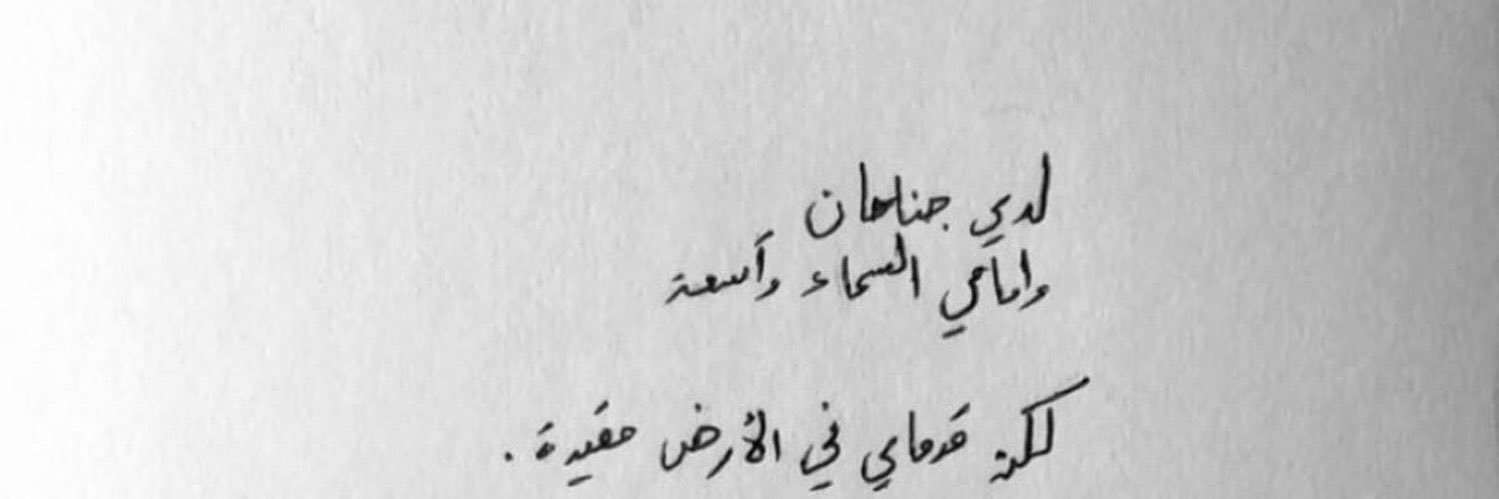 لدي جناحان
وامامي السماء واسعة
لكن قدماي في الأرض مقيدة .